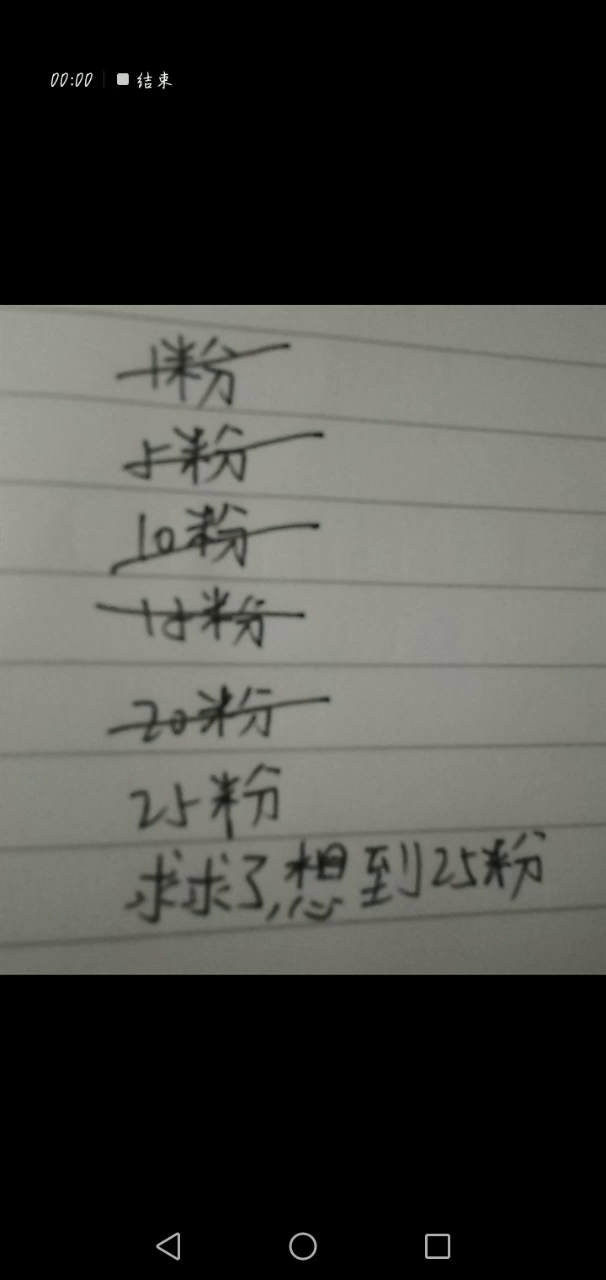 00:00 结束
1粉
5粉
10粉
18粉
20粉
25粉
求求了,想到25粉